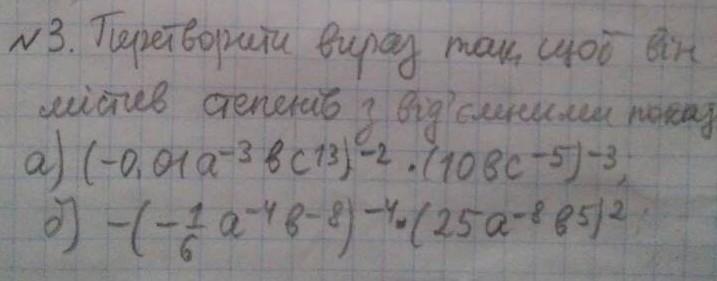 №3. Перетворити вираз так, щоб він
містив степенів з від'ємними показ
а) (-0,01a⁻³bc¹³)⁻² · (10bc⁻⁵)⁻³;
б) -(-1/6 a⁻⁴b⁻⁸)⁻⁴ · (25a⁻⁸b⁵)²